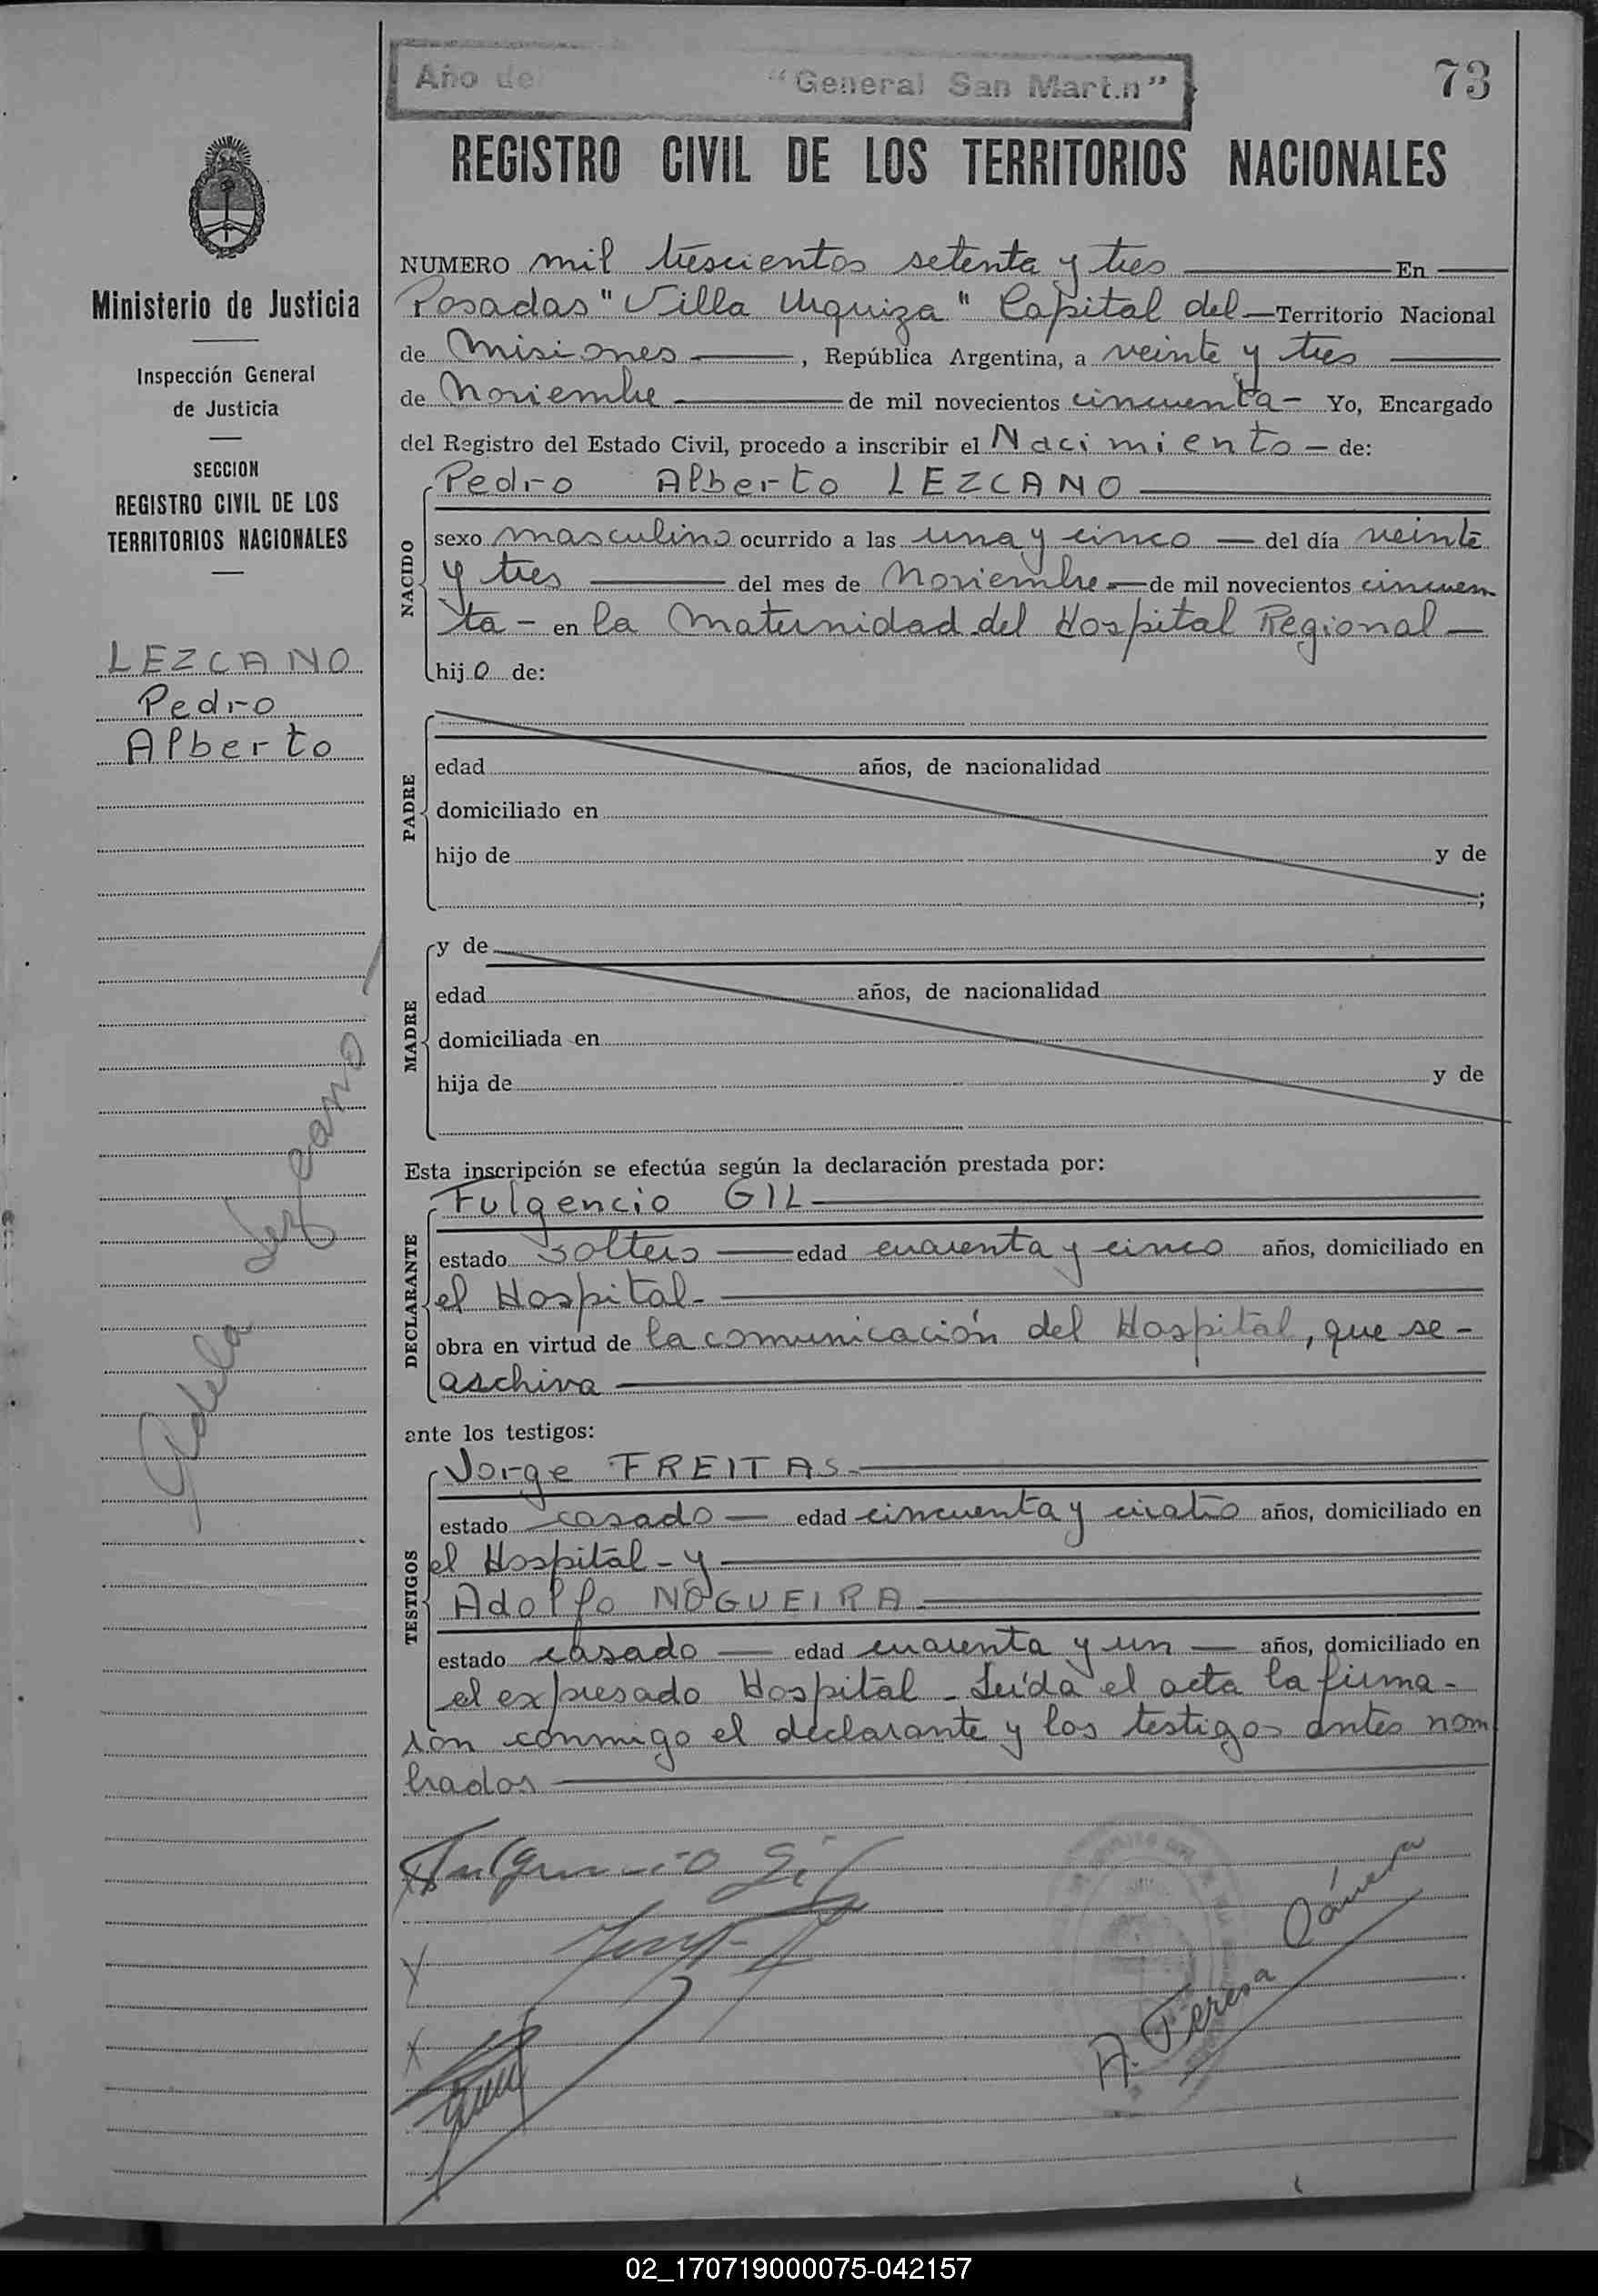 Año del "General San Martin"
73
REGISTRO CIVIL DE LOS TERRITORIOS NACIONALES
Ministerio de Justicia
Inspección General
de Justicia
SECCION
REGISTRO CIVIL DE LOS
TERRITORIOS NACIONALES
LEZCANO
Pedro
Alberto
Adela Lezcano
NUMERO mil trescientos setenta y tres En
Posadas "Villa Urquiza" Capital del Territorio Nacional
de Misiones, República Argentina, a veinte y tres
de Noviembre de mil novecientos cincuenta - Yo, Encargado
del Registro del Estado Civil, procedo a inscribir el Nacimiento - de:
NACIDO
Pedro Alberto LEZCANO
sexo masculino ocurrido a las una y cinco - del día veinte
y tres del mes de Noviembre - de mil novecientos cincuen
ta - en la Maternidad del Hospital Regional -
hijo de:
PADRE
edad años, de nacionalidad
domiciliado en
hijo de y de
;
MADRE
y de
edad años, de nacionalidad
domiciliada en
hija de y de
Esta inscripción se efectúa según la declaración prestada por:
DECLARANTE
Fulgencio GIL
estado soltero edad cuarenta y cinco años, domiciliado en
el Hospital -
obra en virtud de la comunicación del Hospital, que se -
archiva
ante los testigos:
TESTIGOS
Jorge FREITAS -
estado casado - edad cincuenta y cuatro años, domiciliado en
el Hospital - y
Adolfo NOGUEIRA
estado casado - edad cuarenta y un - años, domiciliado en
el expresado Hospital - Leída el acta la firma -
ron conmigo el declarante y los testigos antes nom
brados
Fulgencio Gil
A. Teresa Cámera
02_170719000075-042157